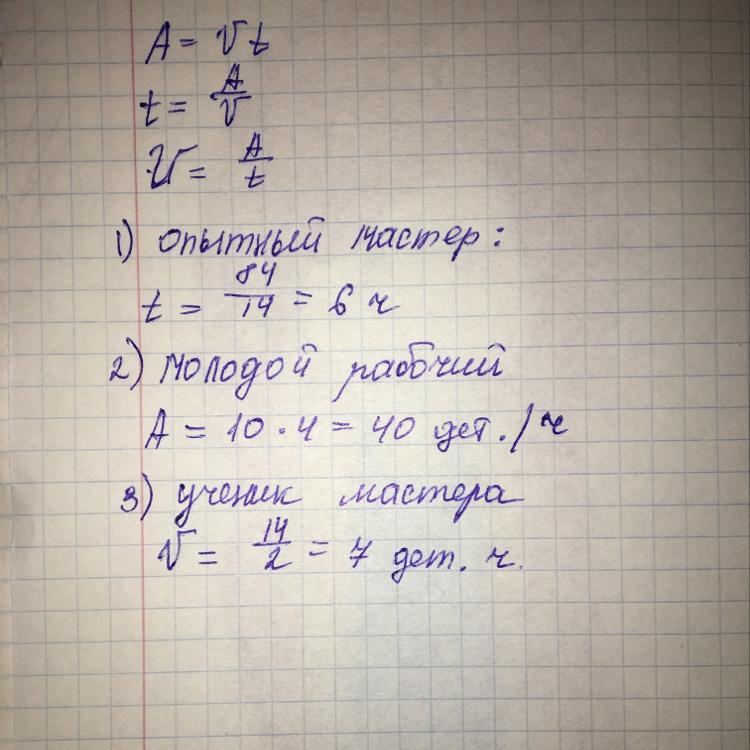 A = v t
t = A/v
v = A/t
1) опытный мастер:
t = 84/14 = 6 ч
2) молодой рабочий
A = 10 · 4 = 40 дет./ч
3) ученик мастера
v = 14/2 = 7 дет. ч.